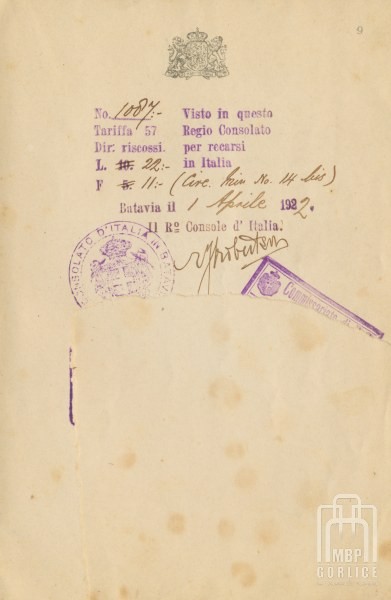 9
No. 1087:- Visto in questo
Tariffa 57 Regio Consolato
Dir: riscossi. per recarsi
L. 10. 22:- in Italia
F 5. 11:- (Circ. Min No. 14 bis)
Batavia il 1 Aprile 1922.
Il Ro Console d' Italia:
CONSOLATO D'ITALIA in BATAVIA
Commissariato
MBP
GORLICE